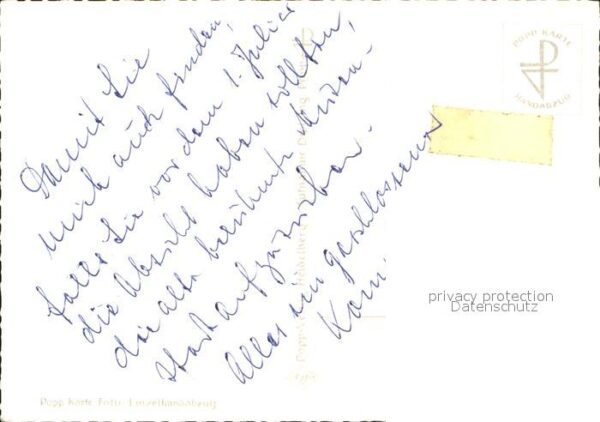 Damit Sie
mich auch finden,
falls Sie vor dem 1. Juli
die Absicht haben sollten,
die alte berühmte
Stadt aufzusuchen.
Alles im geschlossenen
POPP KARTE
HANDABZUG
privacy protection
Datenschutz
Popp Karte Foto-Einzelhandabzug